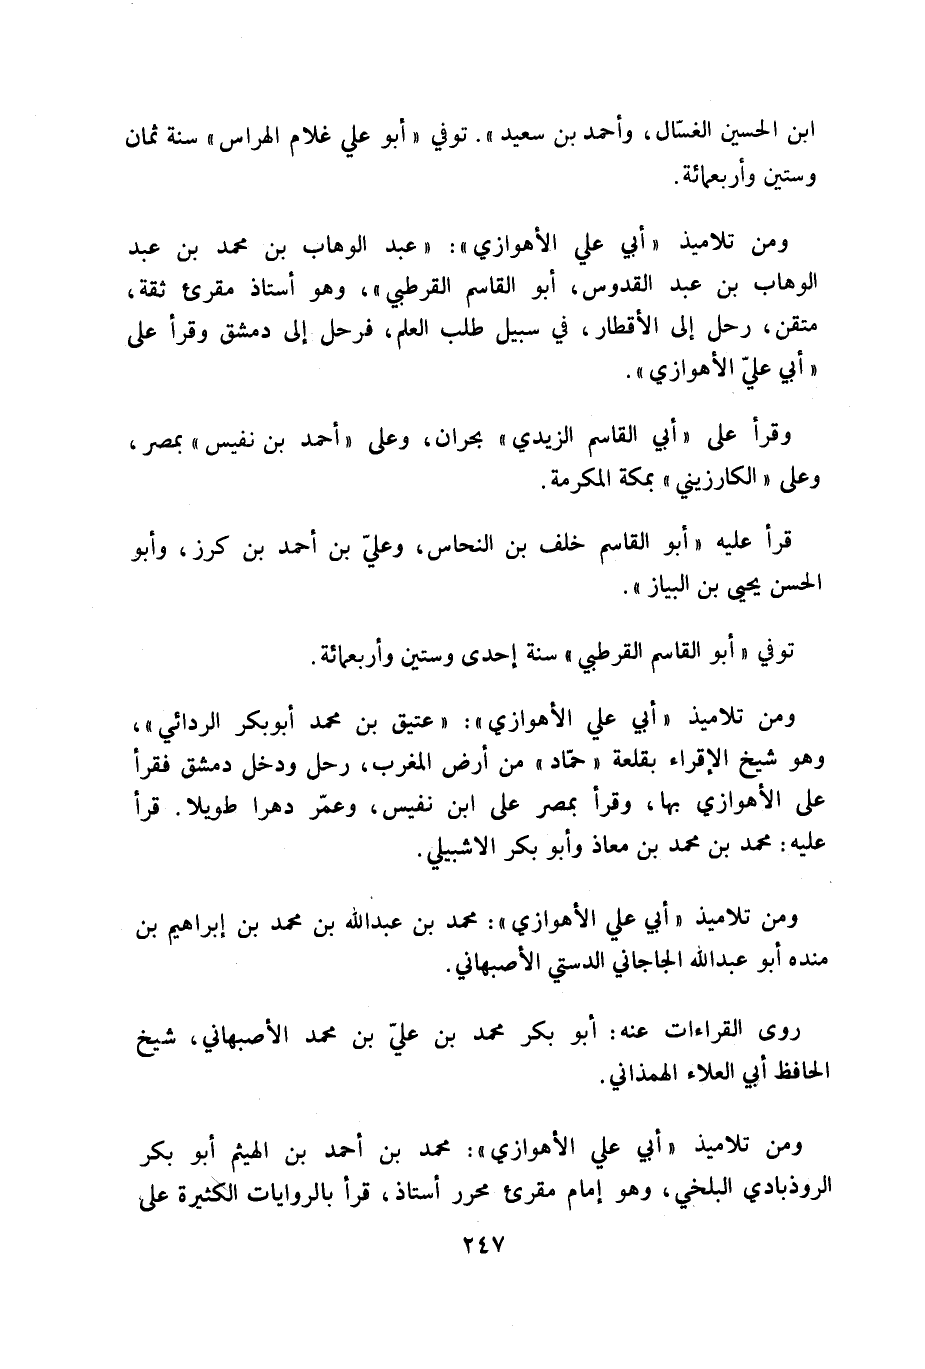 ابن الحسين الغسّال، وأحمد بن سعيد». توفي «أبو علي غلام الهراس» سنة ثمان
وستين وأربعمائة.
ومن تلاميذ «أبي علي الأهوازي»: «عبد الوهاب بن محمد بن عبد
الوهاب بن عبد القدوس، أبو القاسم القرطبي»، وهو أستاذ مقرئ ثقة،
متقن، رحل إلى الأقطار، في سبيل طلب العلم، فرحل إلى دمشق وقرأ على
«أبي عليّ الأهوازي».
وقرأ على «أبي القاسم الزيدي» بحران، وعلى «أحمد بن نفيس» بمصر،
وعلى «الكارزيني» بمكة المكرمة.
قرأ عليه «أبو القاسم خلف بن النحاس، وعليّ بن أحمد بن كرز، وأبو
الحسن يحيى بن البياز».
توفي «أبو القاسم القرطبي» سنة إحدى وستين وأربعمائة.
ومن تلاميذ «أبي علي الأهوازي»: «عتيق بن محمد أبوبكر الردائي»،
وهو شيخ الإقراء بقلعة «حمّاد» من أرض المغرب، رحل ودخل دمشق فقرأ
على الأهوازي بها، وقرأ بمصر على ابن نفيس، وعمّر دهرا طويلا. قرأ
عليه: محمد بن محمد بن معاذ وأبو بكر الاشبيلي.
ومن تلاميذ «أبي علي الأهوازي»: محمد بن عبدالله بن محمد بن إبراهيم بن
منده أبو عبدالله الجاجاني الدستي الأصبهاني.
روى القراءات عنه: أبو بكر محمد بن عليّ بن محمد الأصبهاني، شيخ
الحافظ أبي العلاء الهمذاني.
ومن تلاميذ «أبي علي الأهوازي»: محمد بن أحمد بن الهيثم أبو بكر
الروذبادي البلخي، وهو إمام مقرئ محرر أستاذ، قرأ بالروايات الكثيرة على
٢٤٧